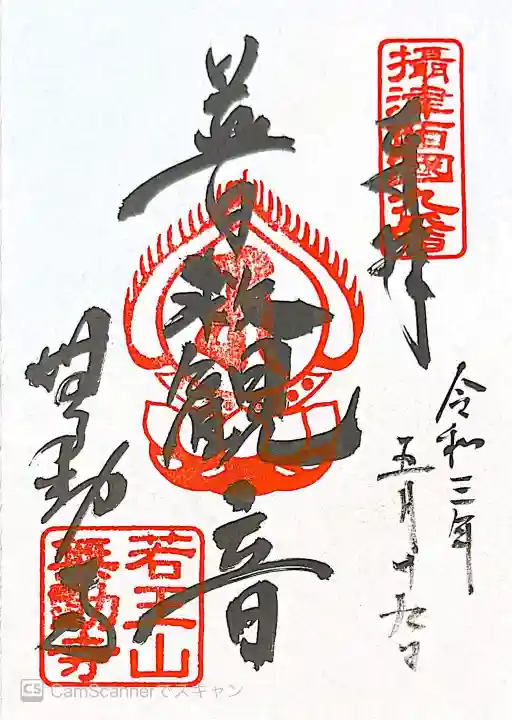 攝津西國
奉拝
令和三年
五月十
観音
無動寺
若王山
無動寺
CS CamScannerでスキャン